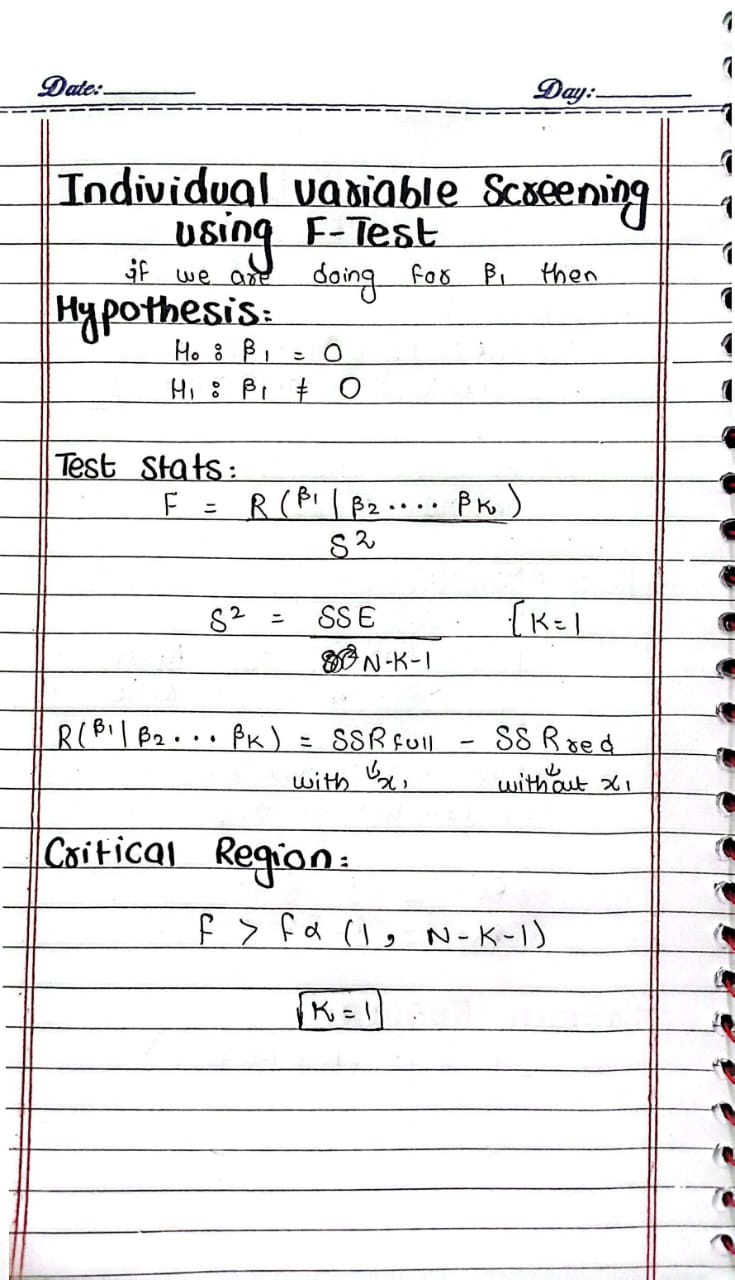 Date: Day:
Individual variable Screening
using F-Test
if we are doing for β1 then
Hypothesis:
H0 : β1 = 0
H1 : β1 ≠ 0
Test stats:
F = R(β1 | β2 .... βK)
S2
S2 = SSE {K=1
N-K-1
R(β1 | β2 ... βK) = SSR full - SSR red
with x1 without x1
Critical Region:
f > fα (1, N-K-1)
K = 1